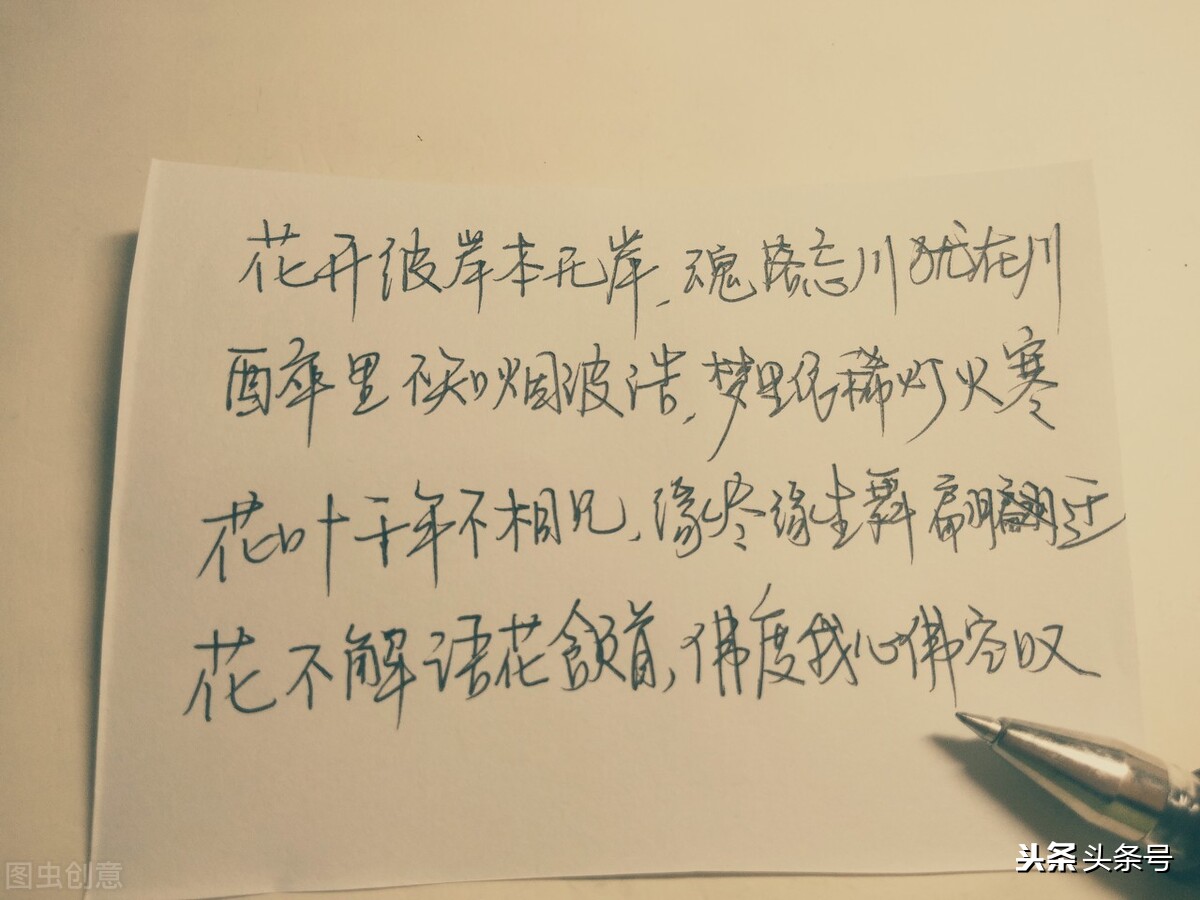 花开彼岸本无岸,魂落忘川犹在川
醉里不知烟波浩,梦里依稀灯火寒
花叶千年不相见,缘尽缘生舞翩翩迁
花不解语花颔首,佛度我心佛空叹
图虫创意
头条 头条号